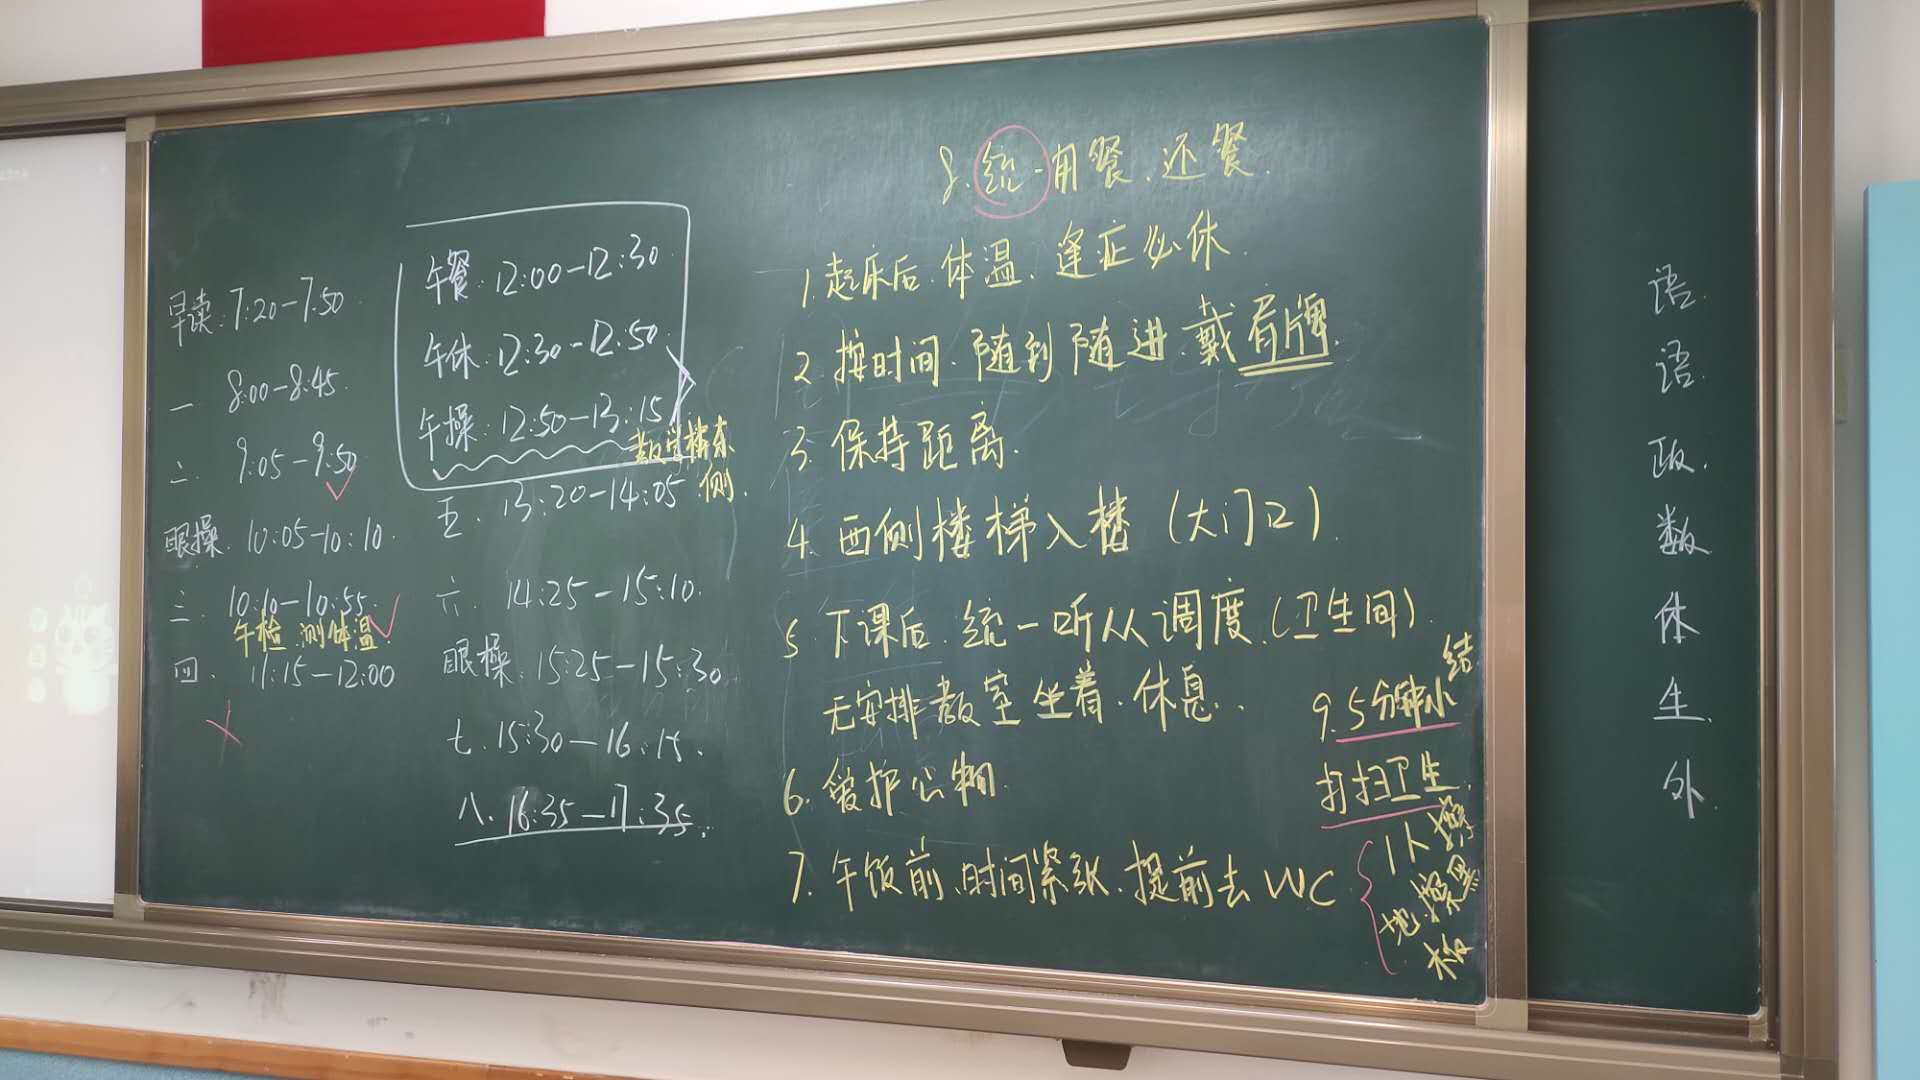 早读:7:20-7:50
一 8:00-8:45.
二. 9:05-9:50
眼操. 10:05-10:10.
三. 10:10-10:55.
午检.测体温.
四. 11:15-12:00
午餐:12:00-12:30
午休:12:30-12:50
午操:12:50-13:15
教学楼东
侧.
五. 13:20-14:05
六. 14:25-15:10.
眼操:15:25-15:30
七.15:30-16:15.
八.16:35-17:35.
8.统一用餐.还餐.
1.起床后.体温.逢症必休.
2.按时间.随到随进.戴肩牌.
3.保持距离.
4.西侧楼梯入楼(大门口).
5.下课后.统一听从调度.(卫生间).
无安排教室坐着.休息..
6.爱护公物.
7.午饭前.时间紧张.提前去WC
9.5分钟小结
打扫卫生.
1人擦
地.擦黑
板
语.
语.
政.
数
体
生.
外.